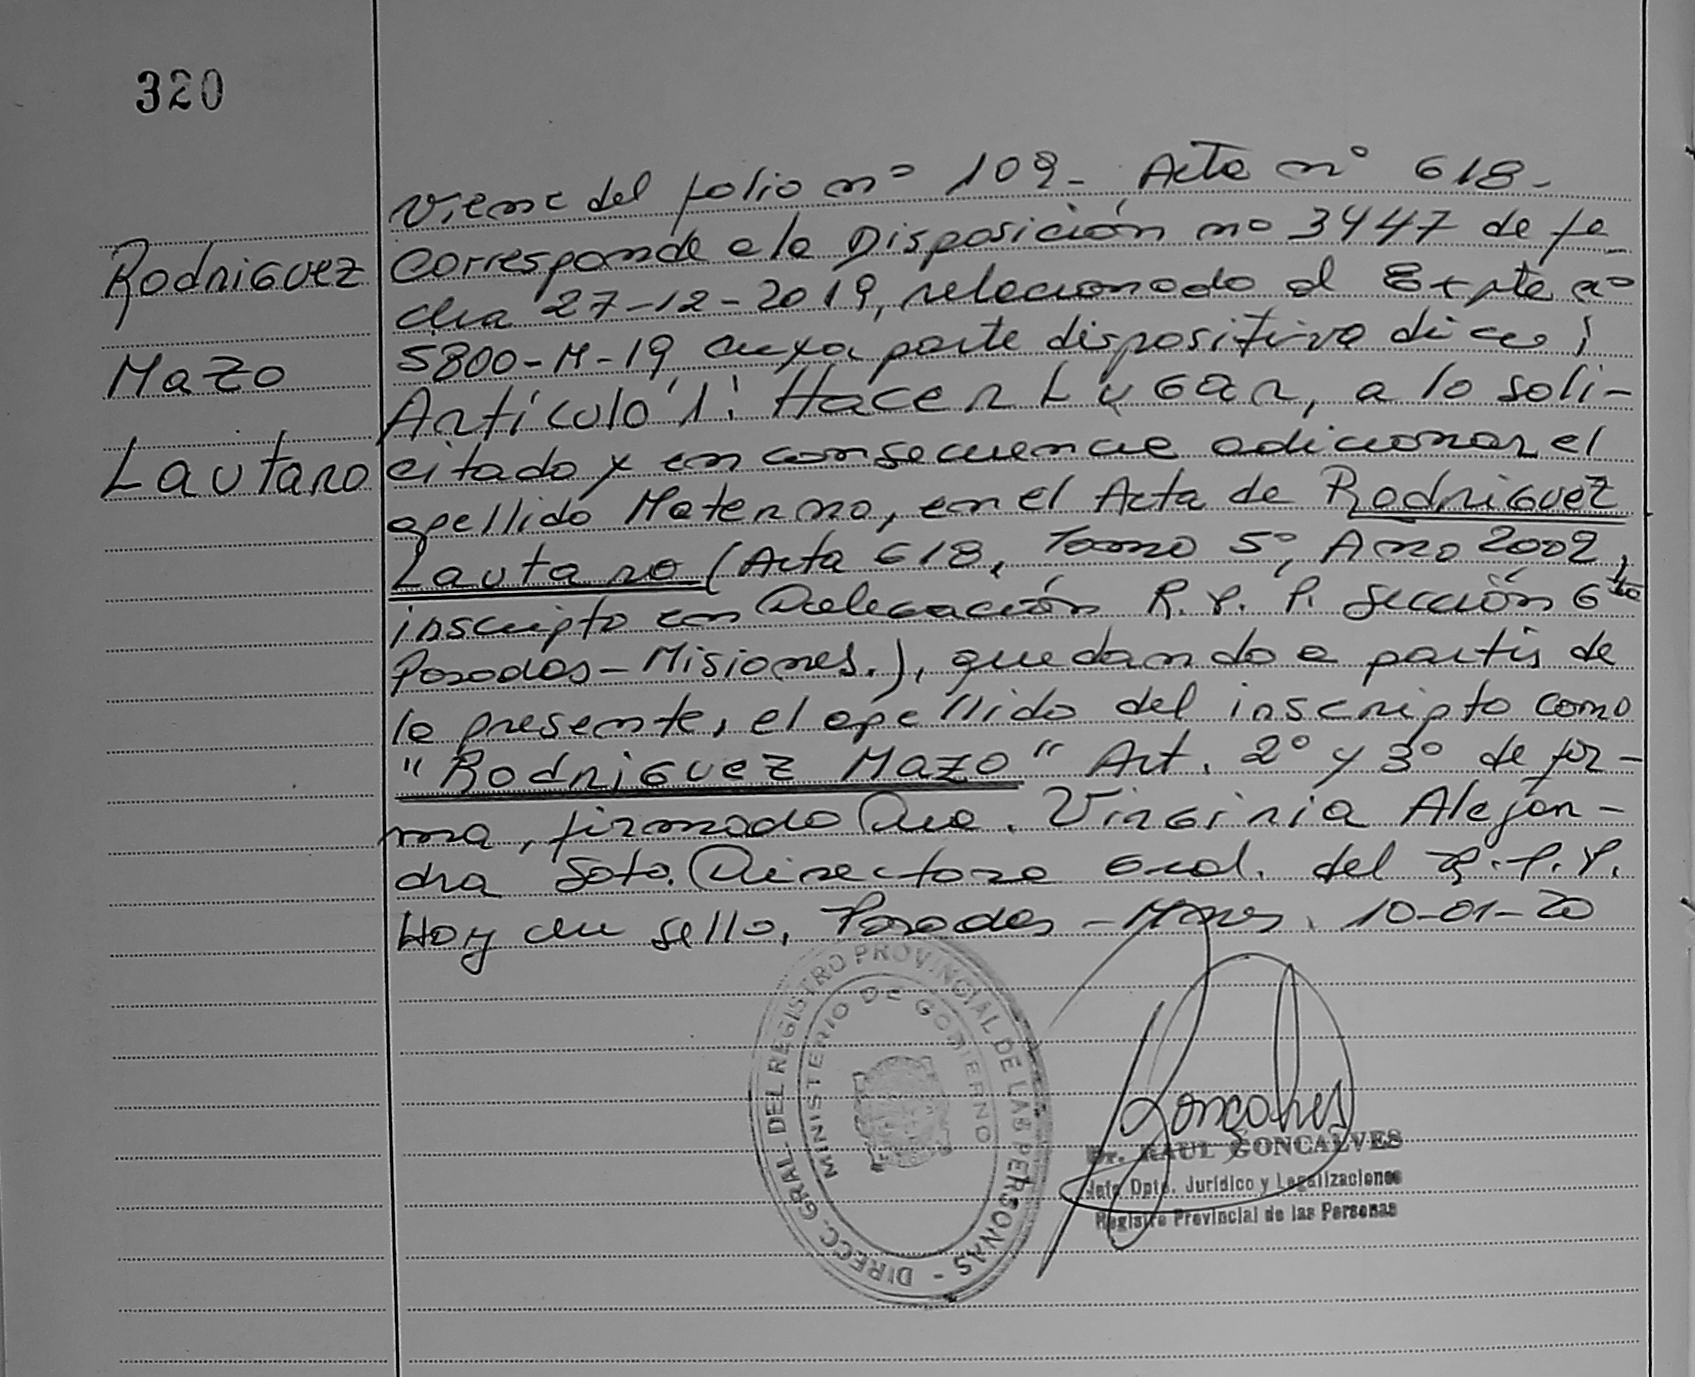 320
Rodriguez
Mazo
Lautaro
Viene del folio nº 109_ Acta nº 618_
Corresponde a la Disposición no 3447 de fe_
cha 27-12-2019, relacionado al Expte nº
5800-M-19 cuya parte dispositiva dice:
Artículo 1: Hacer Lugar, a lo soli-
citado y en consecuencia adicionar el
apellido Materno, en el Acta de Rodriguez
Lautaro (Acta 618, Tomo 5º, Año 2002,
inscripto en Delegación R. P. P. Sección 6ta
Posadas-Misiones.), quedando a partir de
la presente, el apellido del inscripto como
"Rodriguez Mazo" Art. 2º y 3º de for-
ma, firmado Dra. Virginia Alejan-
dra Soto. Directora Gral. del R.P.P.
Hay un sello. Posadas-Mnes. 10-01-20
DIRECC. GRAL. DEL REGISTRO PROVINCIAL DE LAS PERSONAS -
MINISTERIO DE GOBIERNO
Goncalves
Dr. RAUL GONCALVES
Jefe Dpto. Jurídico y Legalizaciones
Registro Provincial de las Personas